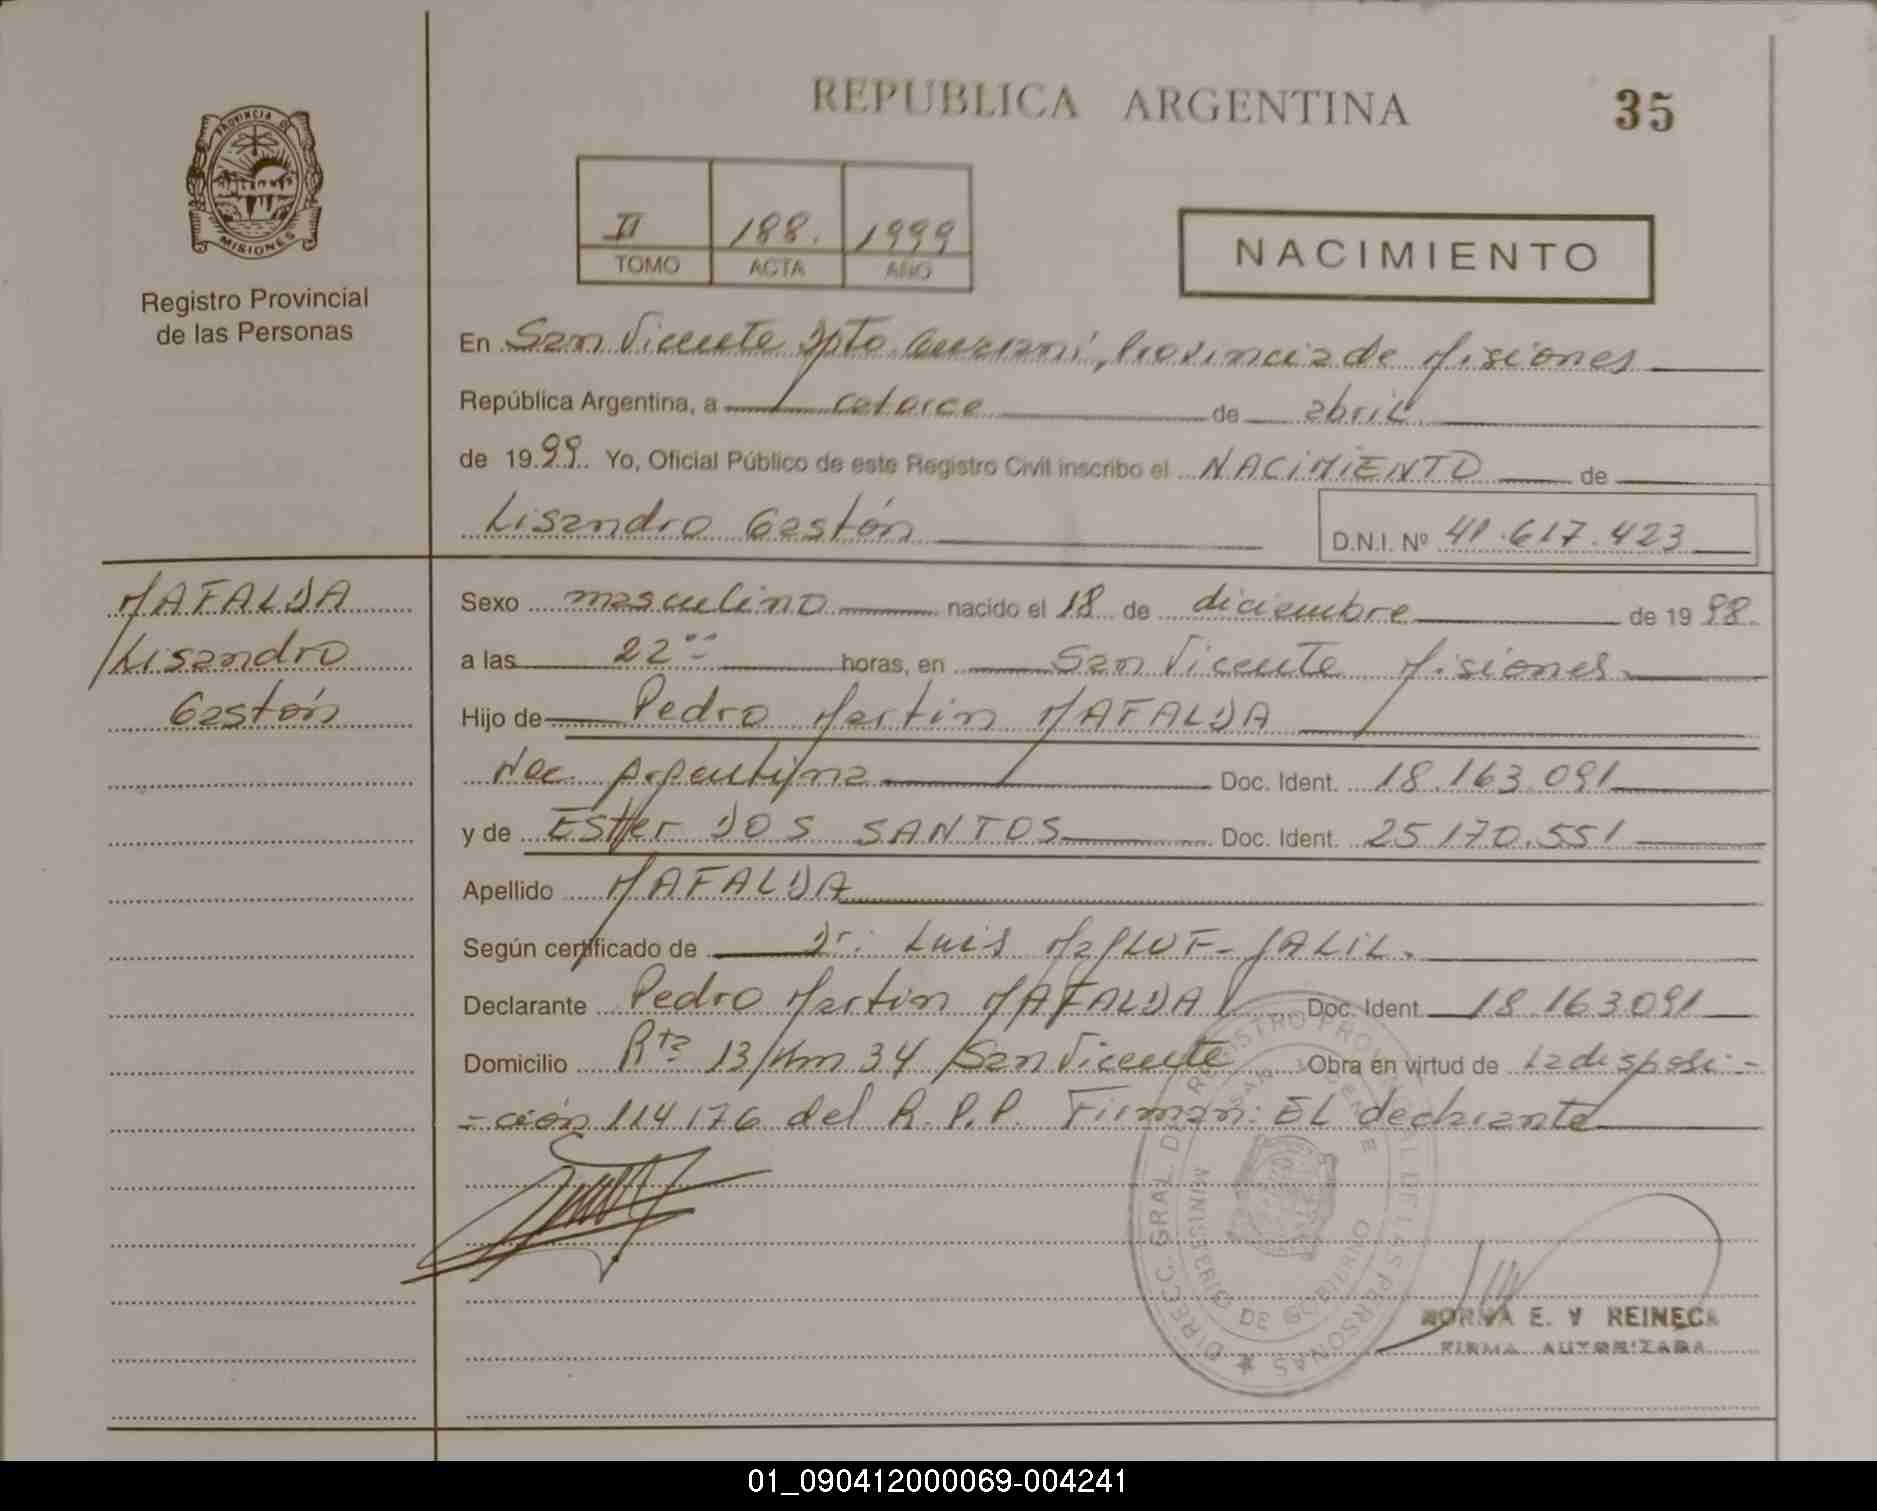 PROVINCIA DE
MISIONES
Registro Provincial
de las Personas
REPUBLICA ARGENTINA
35
II 188. 1999
TOMO ACTA AÑO
NACIMIENTO
En San Vicente Dpto. Guaraní, Provincia de Misiones
República Argentina, a catorce de abril
de 1999. Yo, Oficial Público de este Registro Civil inscribo el NACIMIENTO de
Lisandro Gastón
D.N.I. Nº 41.617.423
MAFALDA
Lisandro
Gastón
Sexo masculino nacido el 18 de diciembre de 1998.
a las 22 horas, en San Vicente Misiones
Hijo de Pedro Martin MAFALDA
Nac. Argentina Doc. Ident. 18.163.091
y de Ester DOS SANTOS Doc. Ident. 25.170.551
Apellido MAFALDA
Según certificado de Dr. Luis JALIL.
Declarante Pedro Martin MAFALDA Doc. Ident. 18.163.091
Domicilio Rta 13/Km 34 San Vicente Obra en virtud de la disposi-
-ción 114176 del R.P.P. Firman: El declarante
DIREC. GRAL. DE REGISTRO PROVINCIAL DE LAS PERSONAS
MINISTERIO DE GOBIERNO
SAN VICENTE
NORMA E. V REINECK
FIRMA AUTORIZADA
01_090412000069-004241